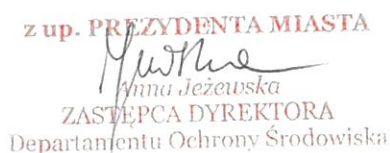 z up. PREZYDENTA MIASTA
Anna Jeżewska
ZASTĘPCA DYREKTORA
Departamentu Ochrony Środowiska